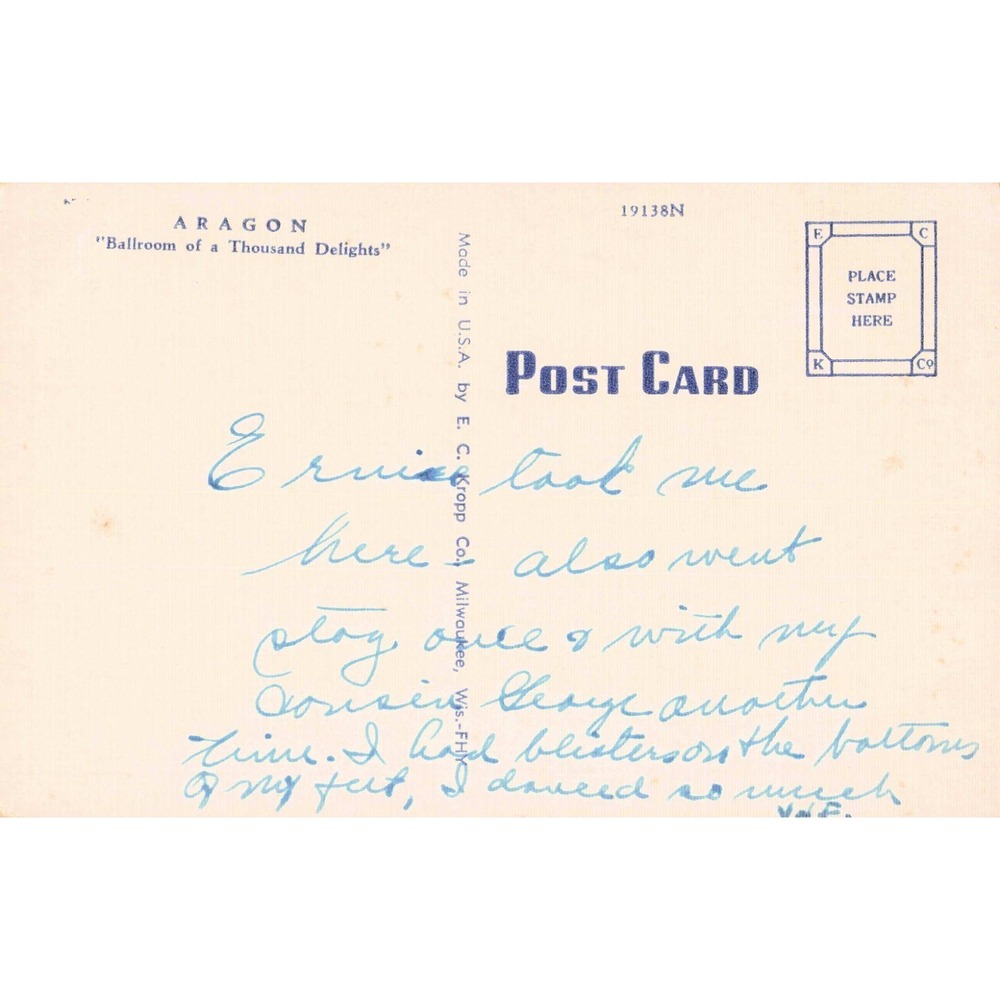 ARAGON
"Ballroom of a Thousand Delights"
19138N
E C
PLACE
STAMP
HERE
K Co
POST CARD
Made in U.S.A. by E. C. Kropp Co., Milwaukee, Wis.-FHY
took me
here - also went
stag once & with my
cousin George another
time. I had blisters on the bottoms
of my feet, I danced so much